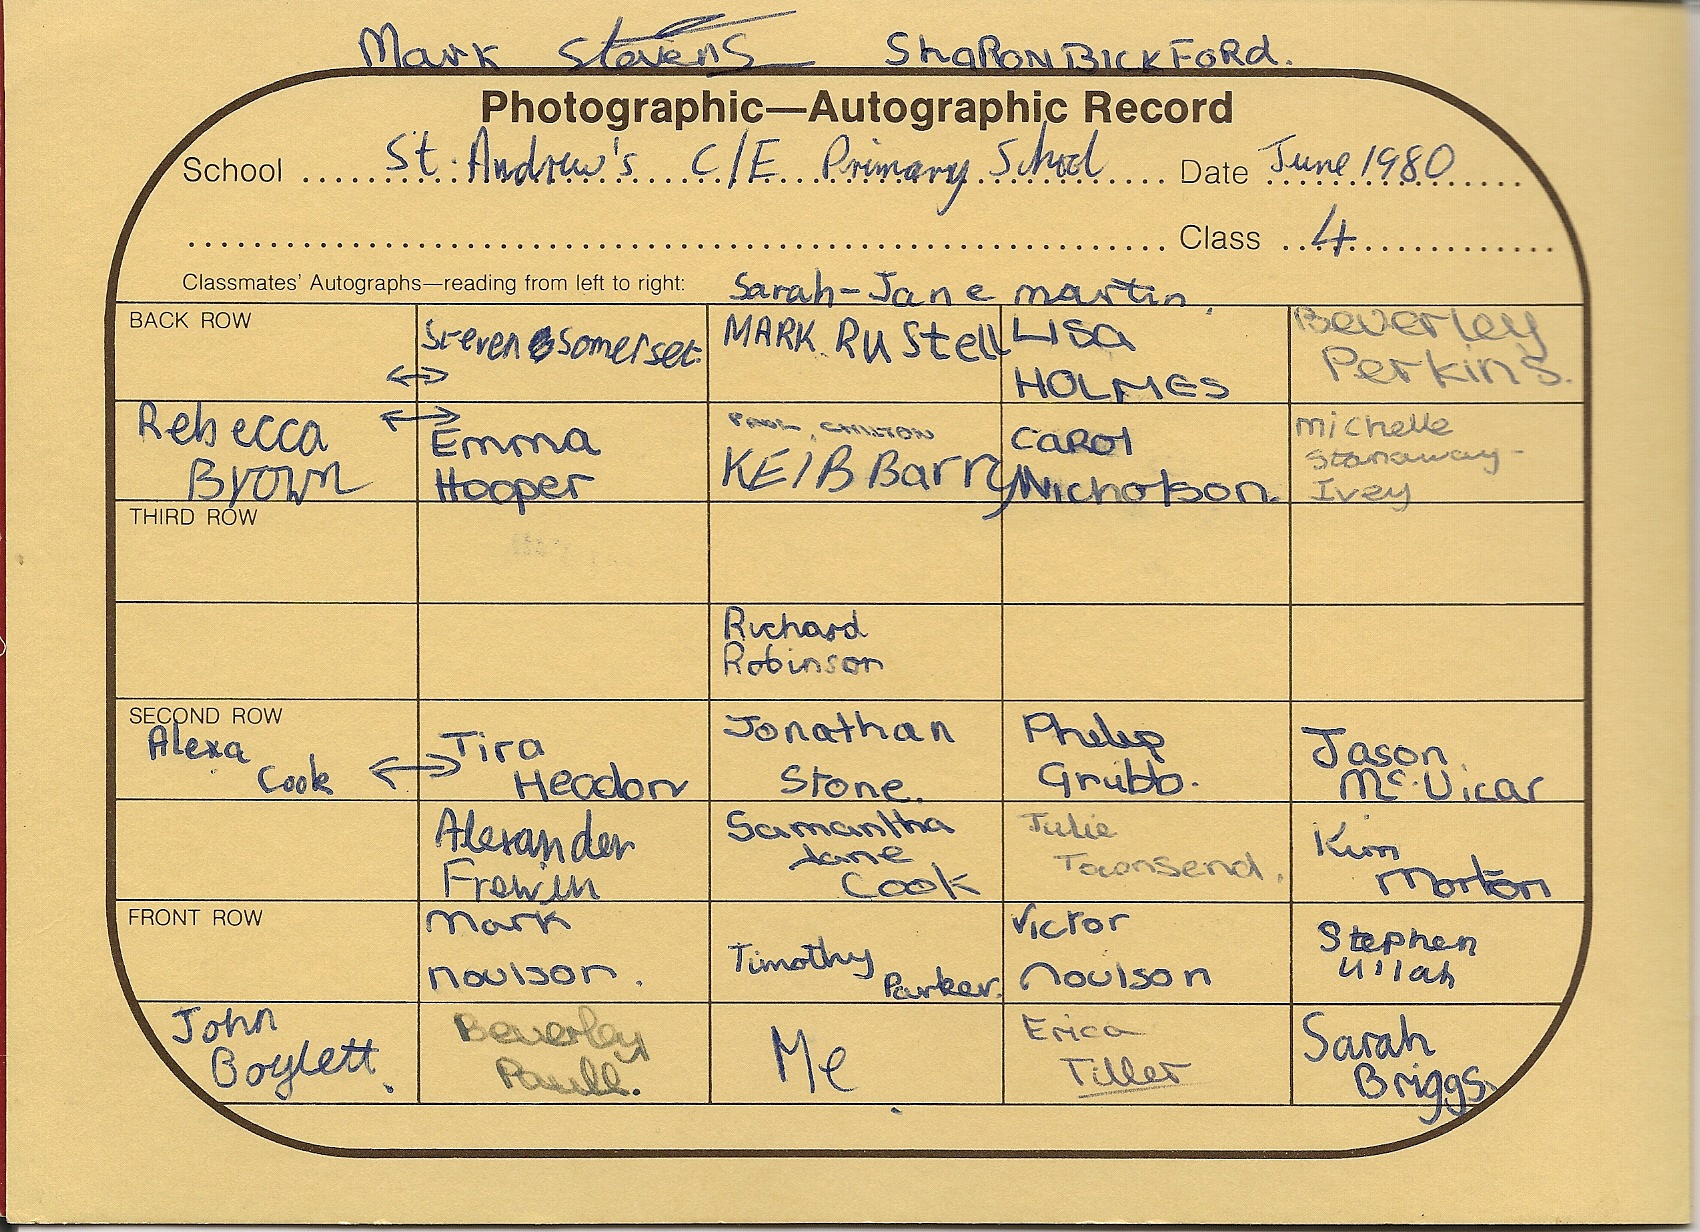 Mark Stevens SHARON BICKFORD.
Photographic—Autographic Record
School St. Andrew's C/E Primary School Date June 1980
Class 4
Classmates' Autographs—reading from left to right: Sarah-Jane martin
BACK ROW
Steven Somerset
MARK RUStell
LISA
HOLMES
Beverley
Perkins.
Rebecca
Brown
Emma
Hooper
PAUL CHILTON
KEIB Barry
CAROl
Nicholson.
Michelle
Stanaway-
Ivey
THIRD ROW
Richard
Robinson
SECOND ROW
Alexa
Cook
Tira
Headon
Jonathan
Stone.
Philip
Grubb.
Jason
Mc.Vicar
Alexander
Frewin
Samantha
Jane
Cook
Julie
Townsend.
Kim
Morton
FRONT ROW
Mark
noulson.
Timothy
Parker.
Victor
noulson
Stephen
Ullah
John
Boylett.
Beverley
Paull.
Me
Erica
Tiller
Sarah
Briggs.